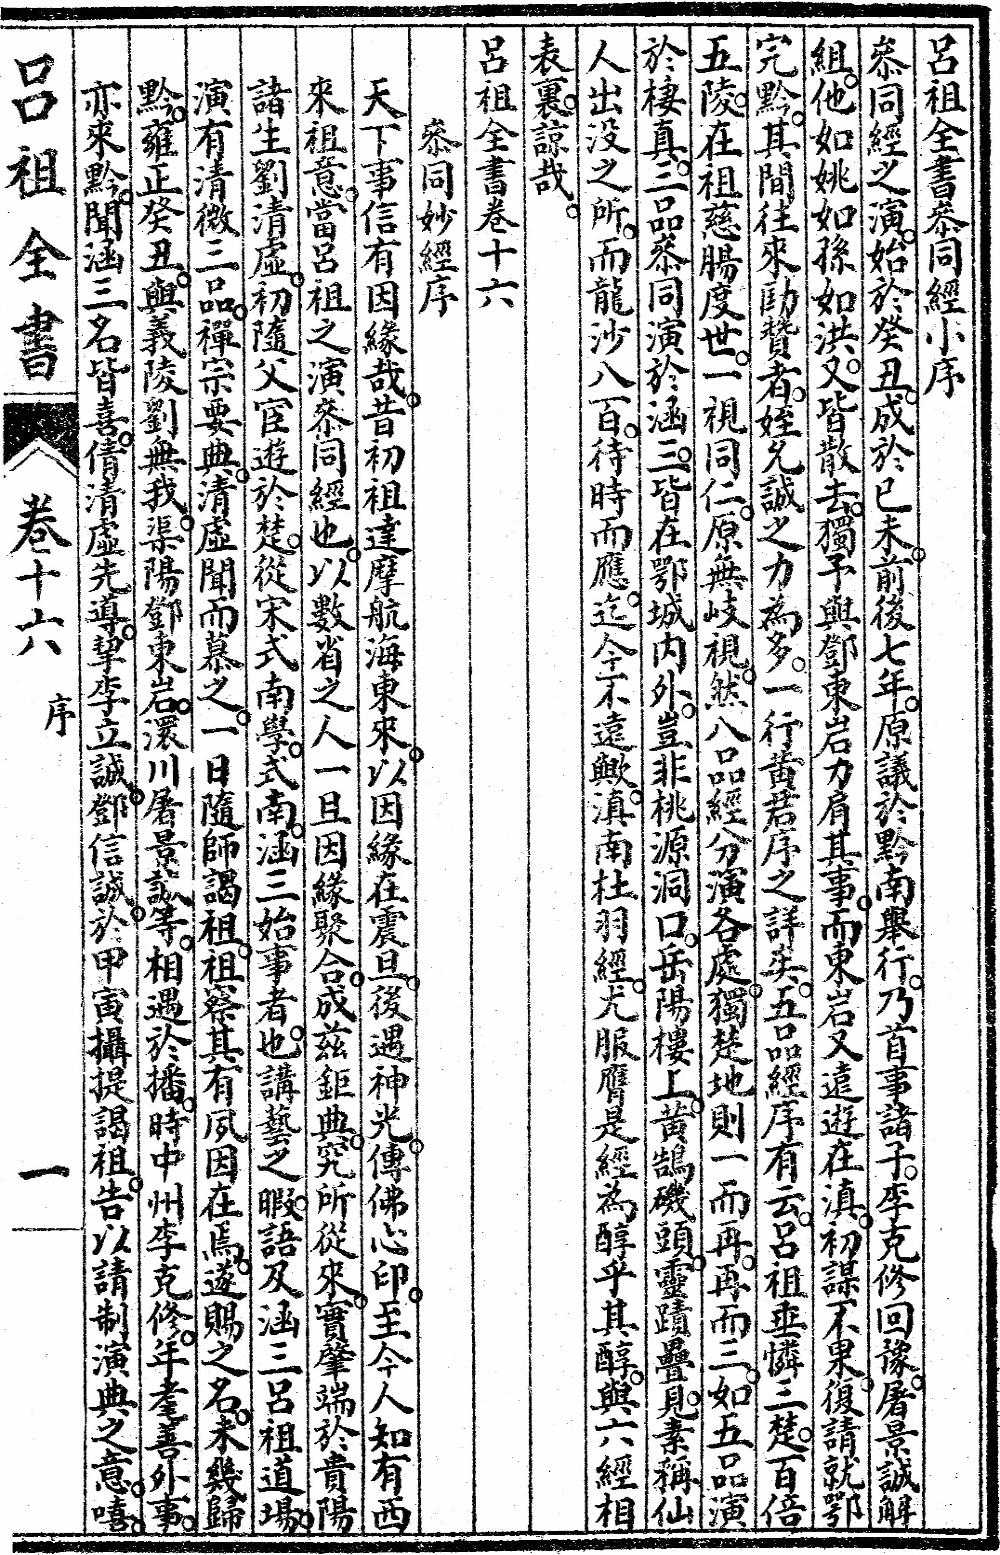 呂祖全書叅同經小序
叅同經之演。始於癸丑。成於已未。前後七年。原議於黔南舉行。乃首事諸子。李克修回豫。屠景誠解
組。他如姚如孫如洪。又皆散去。獨予與鄧東岩力肩其事。而東岩又遠遊在滇。初謀不果。復請就鄂
完黔。其間往來勷贊者。姪允誠之力為多。一行黃君序之詳矣。五品經序有云。呂祖垂憐二楚。百倍
五陵。在祖慈腸度世。一視同仁。原無岐視。然八品經分演各處。獨楚地則一而再。再而三。如五品演
於棲真。三品叅同演於涵三。皆在鄂城內外。豈非桃源洞口。岳陽樓上。黃鵠磯頭。靈蹟疊見。素稱仙
人出没之所。而龍沙八百。待時而應。迄今不遠歟。滇南杜羽經。尤服膺是經為醇乎其醇。與六經相
表裏。諒哉。
呂祖全書卷十六
叅同妙經序
天下事信有因緣哉。昔初祖達摩航海東來。以因緣在震旦。後遇神光。傳佛心印。至今人知有西
來祖意。當呂祖之演叅同經也。以數省之人一旦因緣聚合。成茲鉅典。究所從來。實肇端於貴陽
諸生劉清虛。初隨父宦遊於楚。從宋式南學。式南。涵三始事者也。講藝之暇。語及涵三呂祖道場。
演有清微三品。禪宗要典。清虛聞而慕之。一日隨師謁祖。祖察其有夙因在焉。遂賜之名。未幾歸
黔。雍正癸丑。與義陵劉無我。渠陽鄧東岩。澴川屠景誠等。相遇於播。時中州李克修。年耄善外事。
亦來黔。聞涵三名皆喜。倩清虛先導。挈李立誠。鄧信誠。於甲寅攝提謁祖。告以請制演典之意。嘻。
呂祖全書
卷十六
序
一